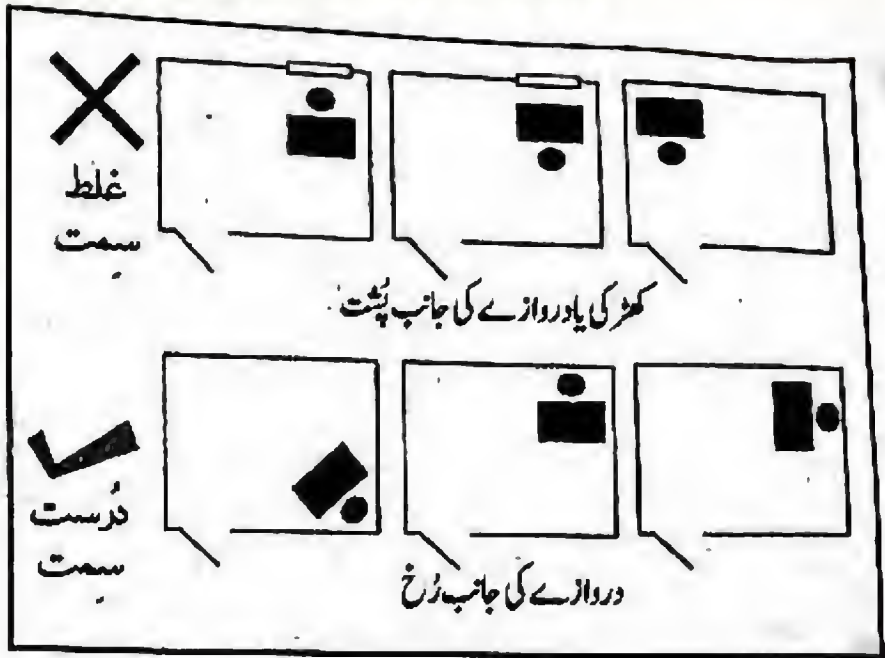 غلط
سِمت
کھڑکی یا دروازے کی جانب پُشت
دُرست
سِمت
دروازے کی جانب رُخ